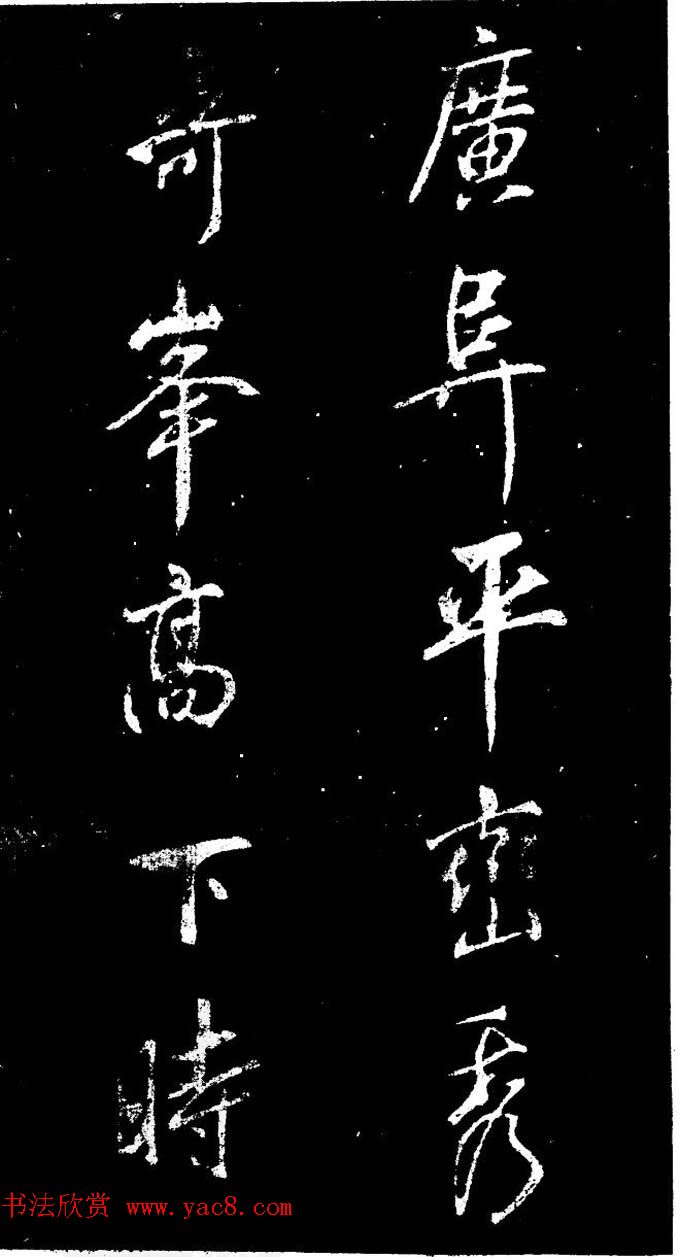 廣阜平峦秀
奇峯高下時
书法欣赏 www.yac8.com